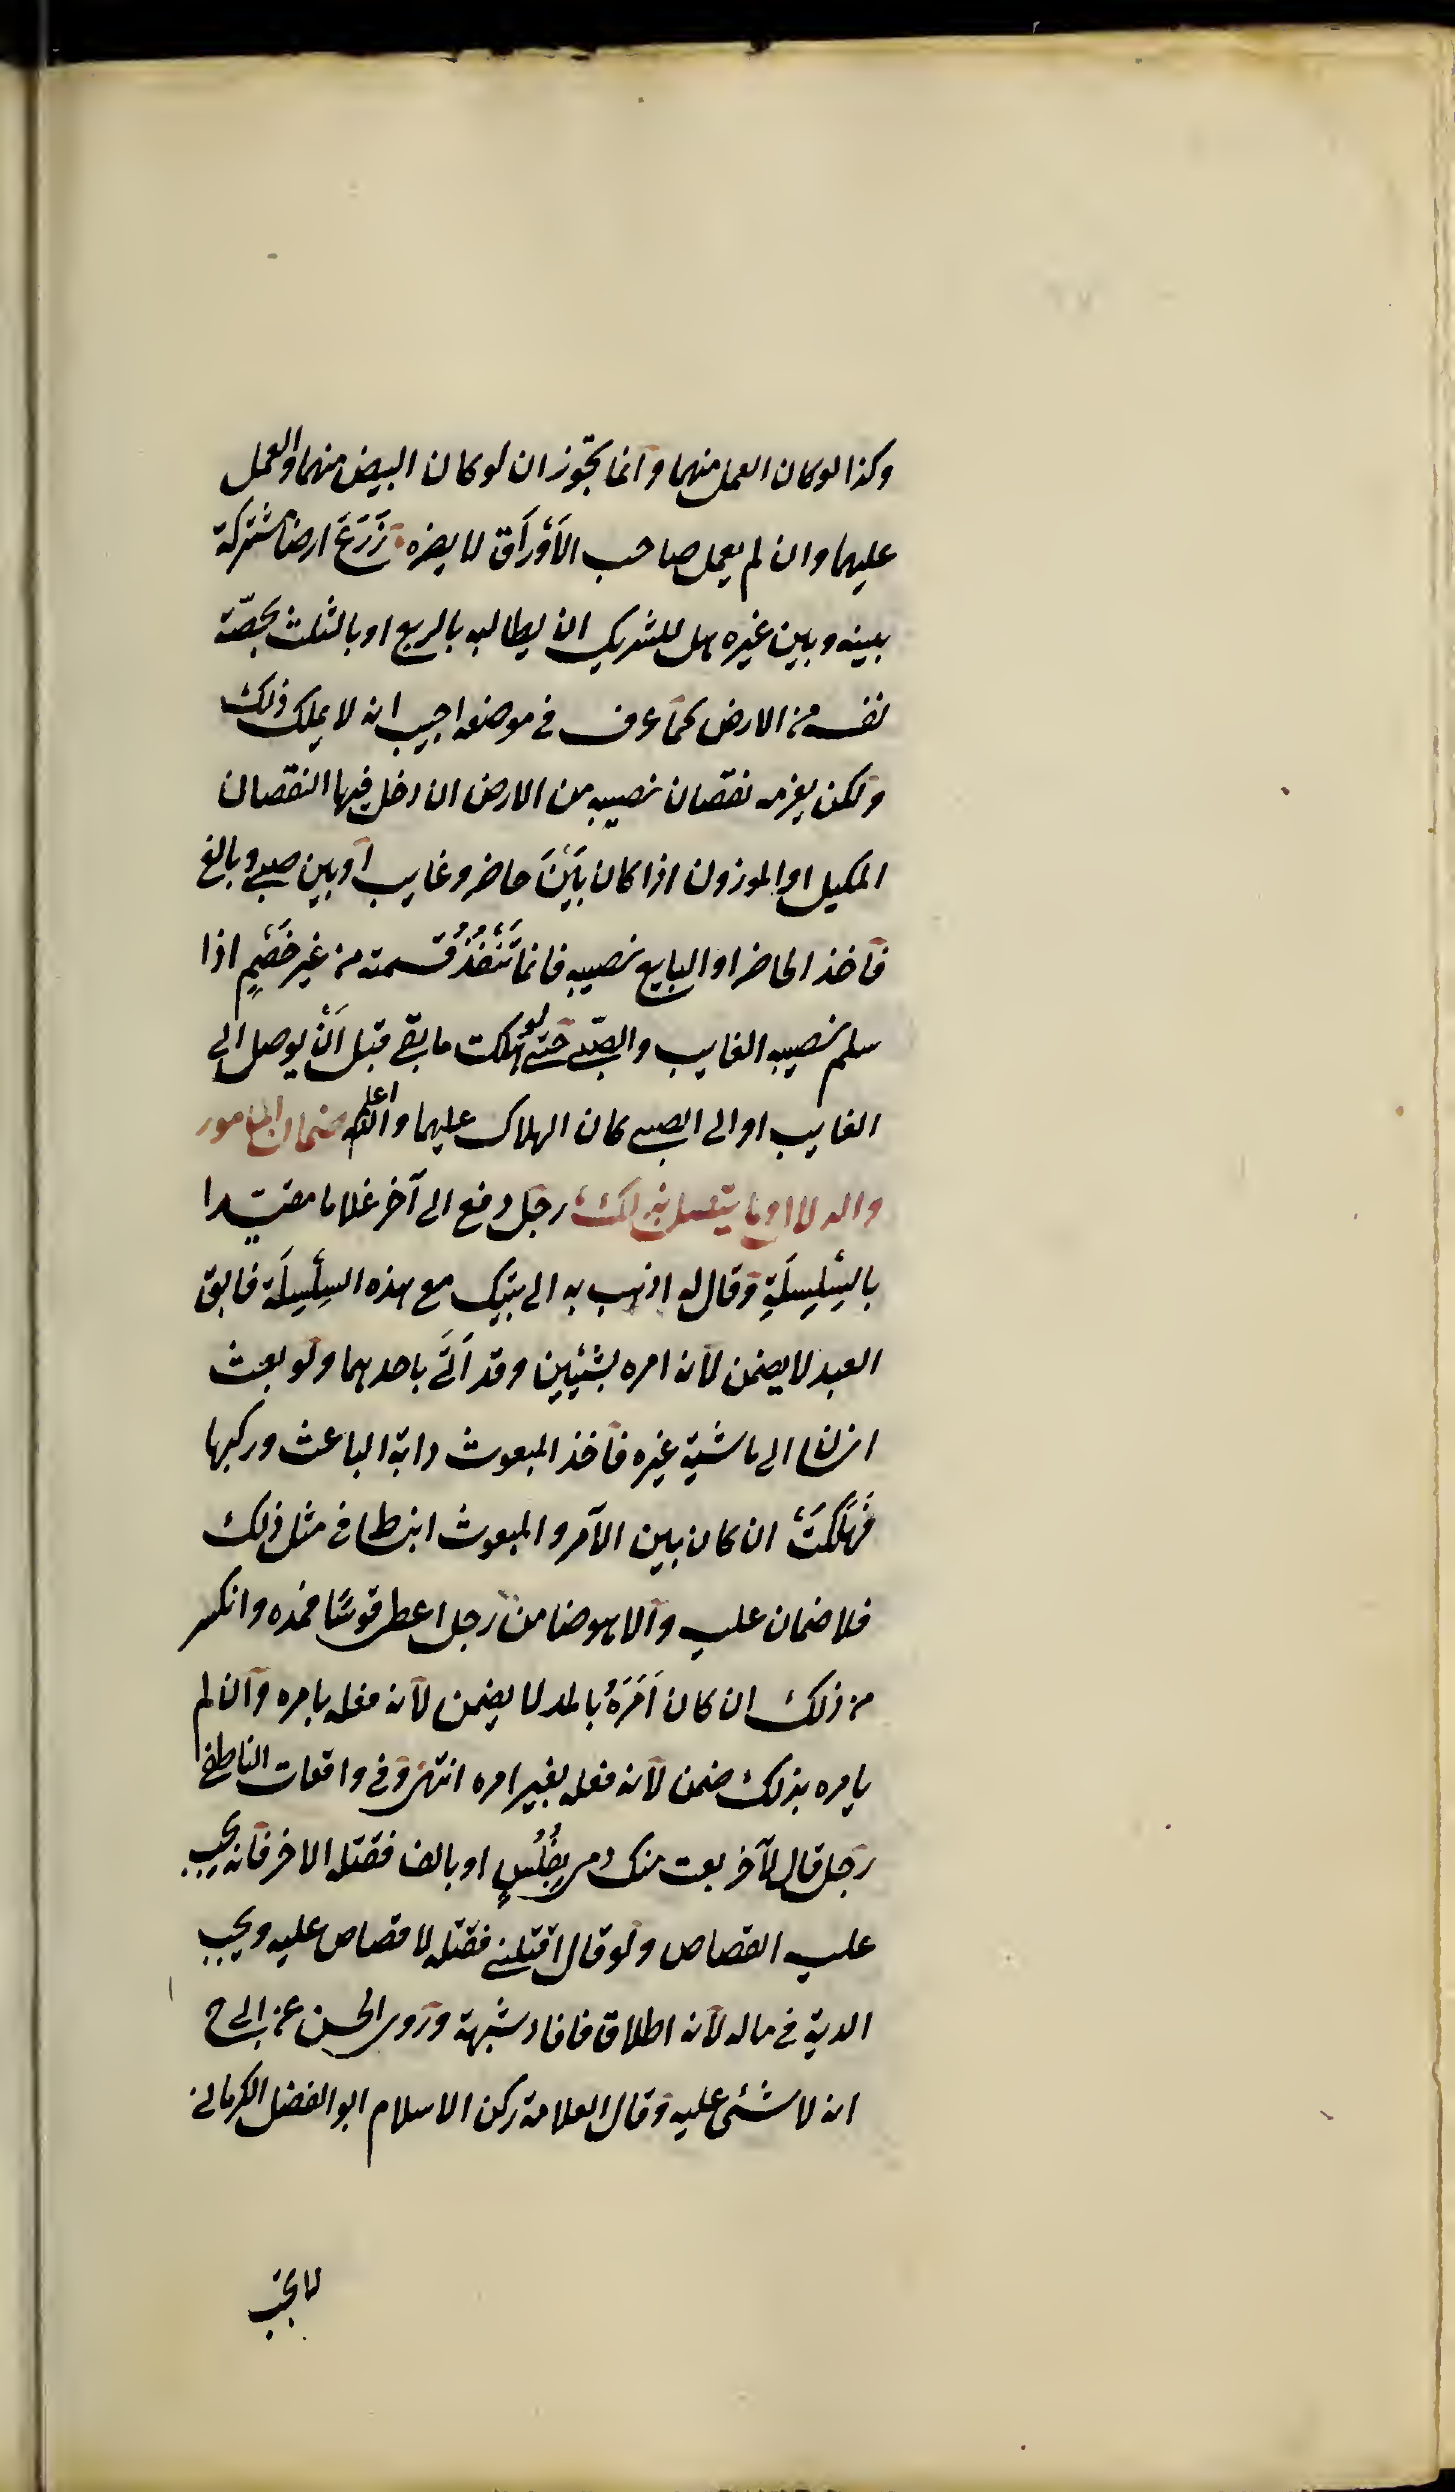 وكذا لو كان العمل منهما وانما يجوز ان لو كان البيض منهما والعمل
عليهما وان لم يعمل صاحب الأَوْرَاق لا يضره زَرَعَ ارضا مشتركة
بينه وبين غيره هل للشريك ان يطالبه بالربع او بالثلث بحصّة
نفسه من الارض كما عرف في موضعه اجيب انه لا يملك ذلك
ولكن يغرمه نقصان نصيبه من الارض ان دخل فيها النقصان
المكيل او الموزون اذا كان بَيْنَ حاضر وغايب او بين صبي وبالغ
فاخذ الحاضر او البايع نصيبه فانما تَنْفُذُ قسمته من غير خَصْمٍ اذا
سلم نصيبه الغايب والصبّي حتى لو هلكت ما بقي قبل اَنْ يوصل الي
الغايب او الى الصبي كان الهلاك عليهما والله اعلم ضمان المامور
والدلال وما يتصل بذلك رجل دفع الى آخر غلاما مقيّدا
بالسِلْسِلَةِ وقال له اذهب به الى بيتك مع هذه السِلْسِلَة فابق
العبد لا يضمن لانه امره بشيئين وقد اَتَى باحدهما ولو بعث
انسانا الى ماشية غيره فاخذ المبعوث دابة الباعث وركبها
فَهَلَكَتْ ان كان بين الآمر والمبعوث انبساط في مثل ذلك
فلا ضمان عليه والا هو ضامن رجل اعطى قوسًا فمده وانكسر
من ذلك ان كان اَمَرَهُ بالمد لا يضمن لانه فعله بامره وان لم
يامره بذلك ضمن لانه فعله بغير امره انتهى وفي واقعات الناطفي
رجل قال لآخر بعت منك دمي بِفُلُسٍ او بالف فقتله الاخر فانه يجب
عليه القصاص ولو قال اقتلني فقتله لا قصاص عليه ويجب
الدية في ماله لانه اطلاق فافاد شبهة وروى الحسن عن ابي ح
انه لا شئ عليه وقال العلامة ركن الاسلام ابو الفضل الكرماني
لا يجب